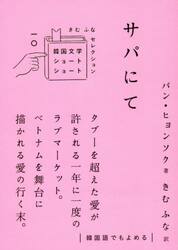 きむ ふな セレクション
一〇
韓国文学
ショート
ショート
サパにて
パン・ヒョンソク 著
きむ ふな 訳
タブーを超えた愛が
許される一年に一度の
ラブマーケット。
ベトナムを舞台に
描かれる愛の行く末。
韓国語でもよめる